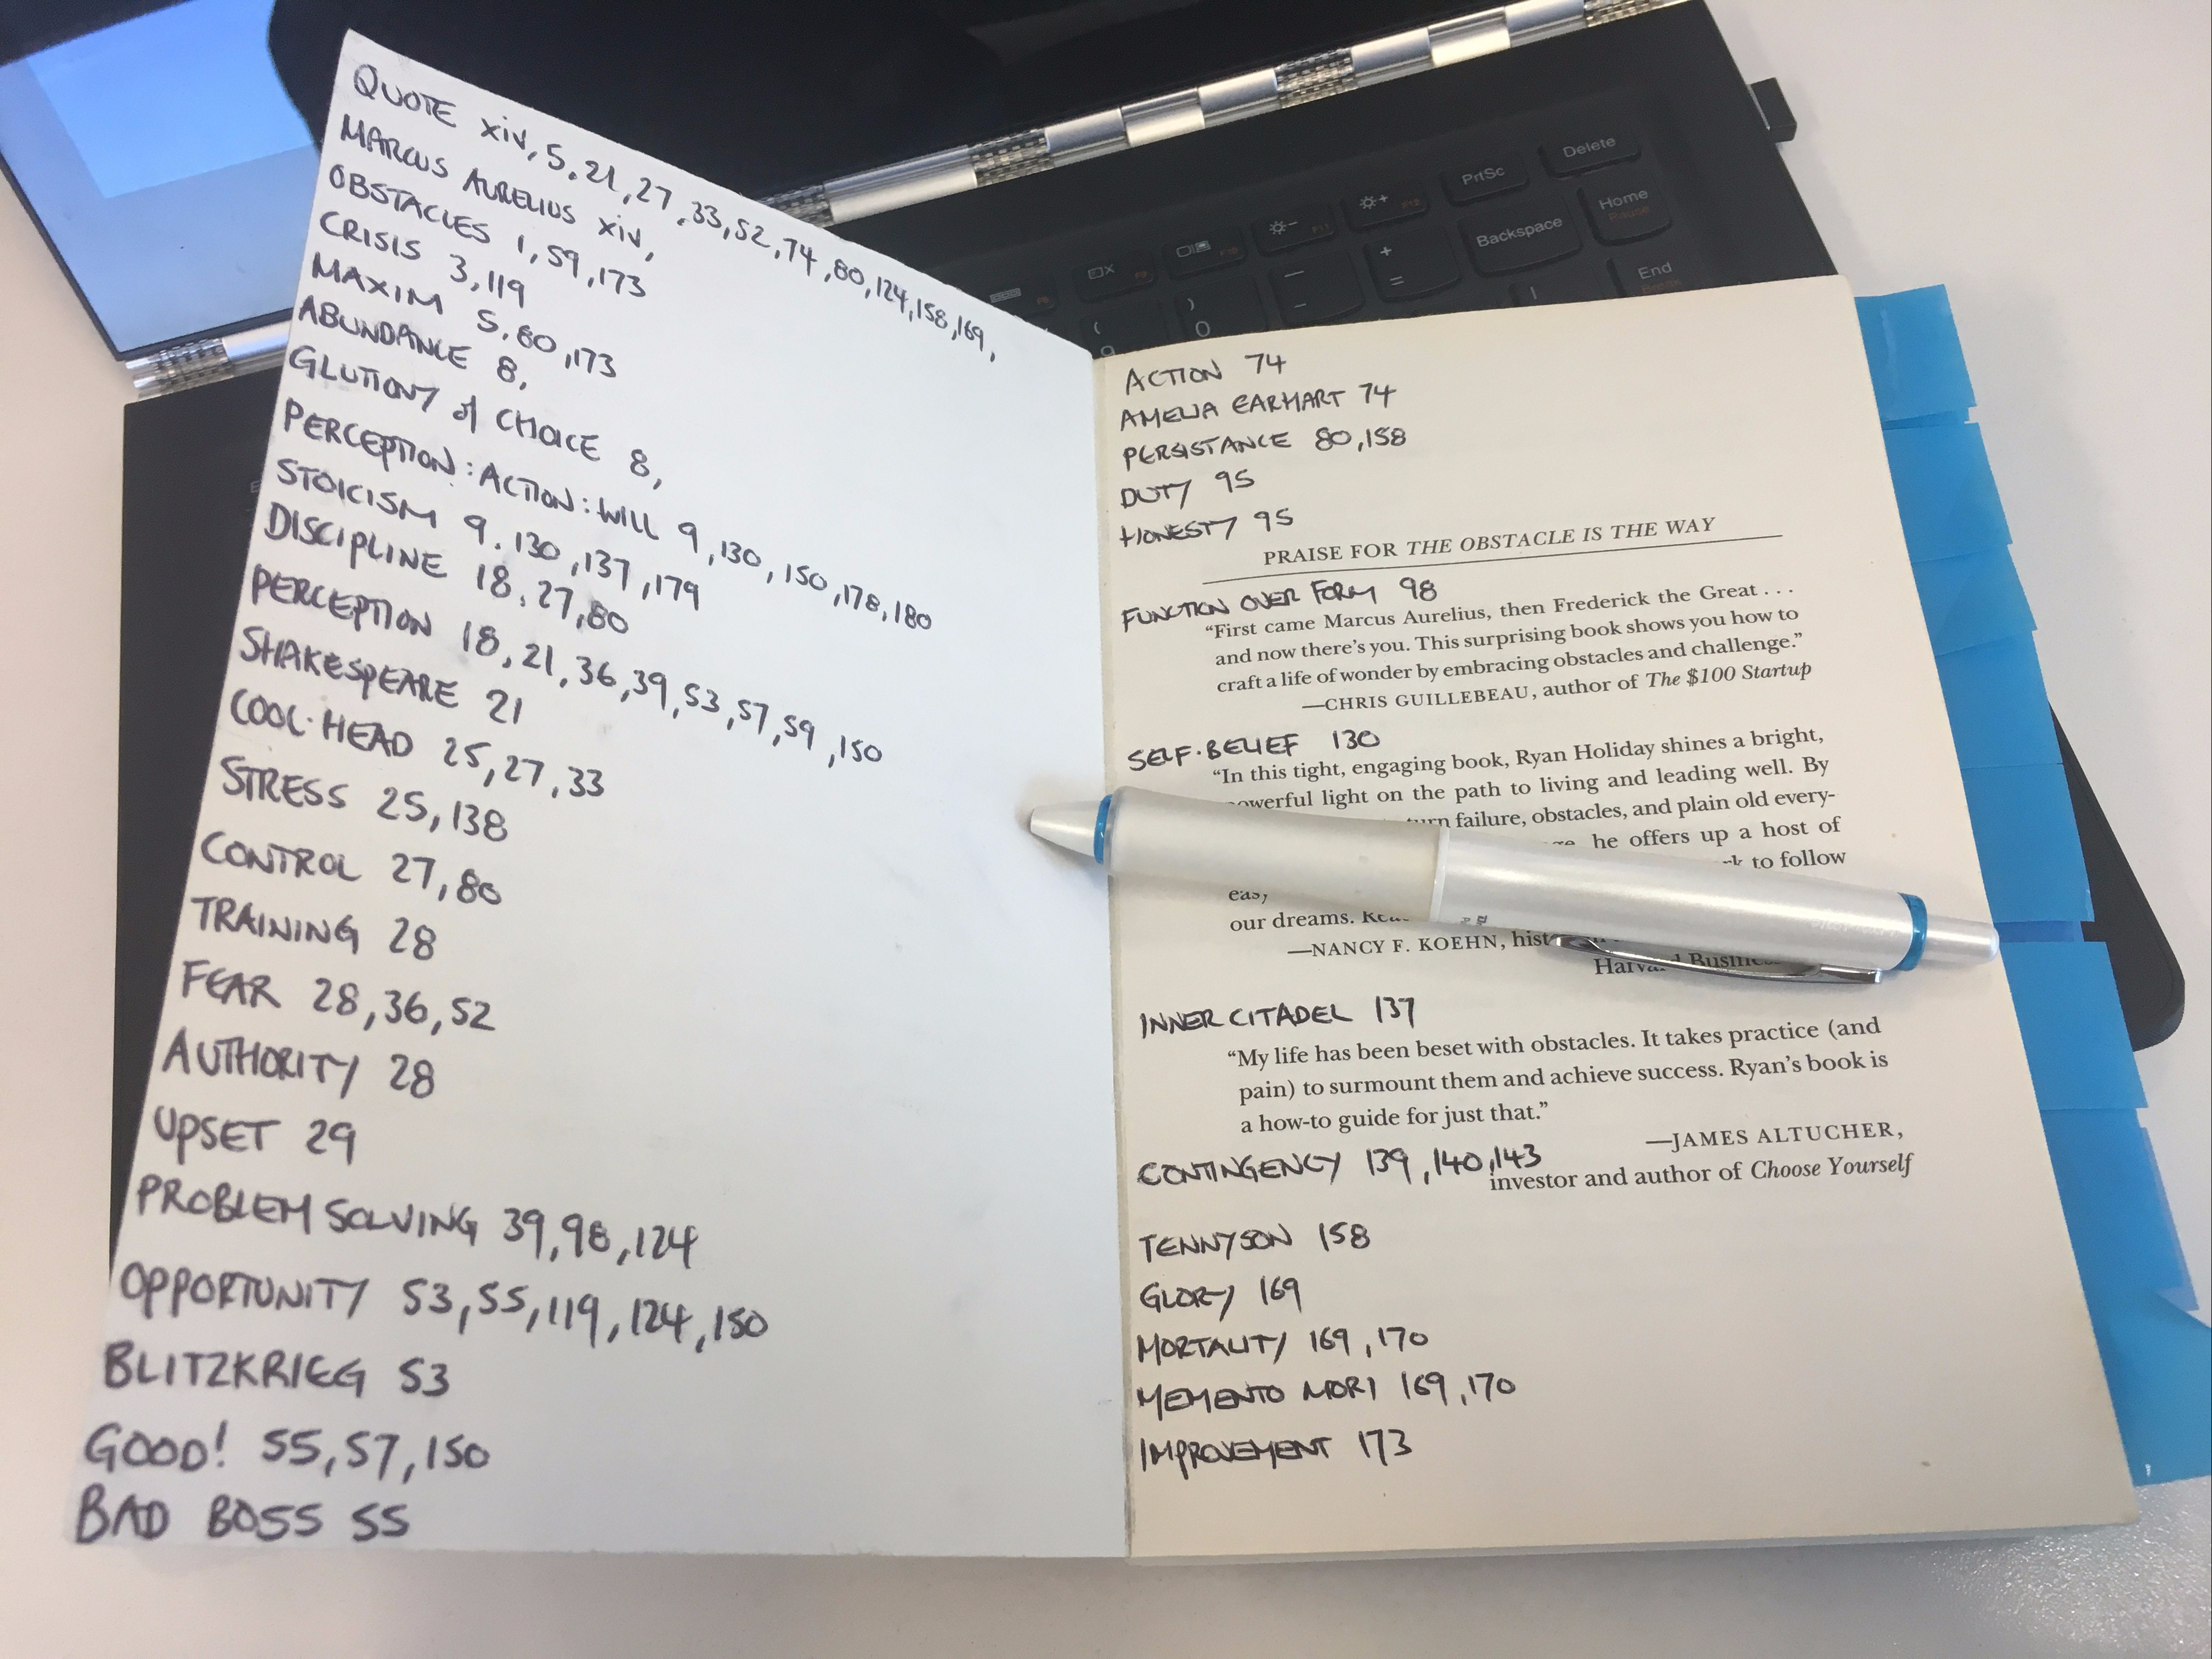 QUOTE xiv, 5, 21, 27, 33, 52, 74, 80, 124, 158, 169,
MARCUS AURELIUS xiv,
OBSTACLES 1, 59, 173
CRISIS 3, 119
MAXIM 5, 80, 173
ABUNDANCE 8,
GLUTTONY of CHOICE 8,
PERCEPTION : ACTION : WILL 9, 130, 150, 178, 180
STOICISM 9, 130, 137, 179
DISCIPLINE 18, 27, 80
PERCEPTION 18, 21, 36, 39, 53, 57, 59, 150
SHAKESPEARE 21
COOL·HEAD 25, 27, 33
STRESS 25, 138
CONTROL 27, 80
TRAINING 28
FEAR 28, 36, 52
AUTHORITY 28
UPSET 29
PROBLEM SOLVING 39, 98, 124
OPPORTUNITY 53, 55, 119, 124, 150
BLITZKRIEG 53
GOOD! 55, 57, 150
BAD BOSS 55
ACTION 74
AMELIA EARHART 74
PERSISTANCE 80, 158
DUTY 95
HONESTY 95
PRAISE FOR THE OBSTACLE IS THE WAY
FUNCTION OVER FORM 98
“First came Marcus Aurelius, then Frederick the Great . . .
and now there’s you. This surprising book shows you how to
craft a life of wonder by embracing obstacles and challenge.”
—CHRIS GUILLEBEAU, author of The $100 Startup
SELF·BELIEF 130
“In this tight, engaging book, Ryan Holiday shines a bright,
powerful light on the path to living and leading well. By
turn failure, obstacles, and plain old every-
he offers up a host of
to follow
our dreams.
—NANCY F. KOEHN,
INNER CITADEL 137
“My life has been beset with obstacles. It takes practice (and
pain) to surmount them and achieve success. Ryan’s book is
a how-to guide for just that.”
—JAMES ALTUCHER,
CONTINGENCY 139, 140, 143
investor and author of Choose Yourself
TENNYSON 158
GLORY 169
MORTALITY 169, 170
MEMENTO MORI 169, 170
IMPROVEMENT 173
PrtSc
Delete
Backspace
Home
Pause
End
Break
F9
F10
F11
F12
+
=
—
–
)
0
(
9